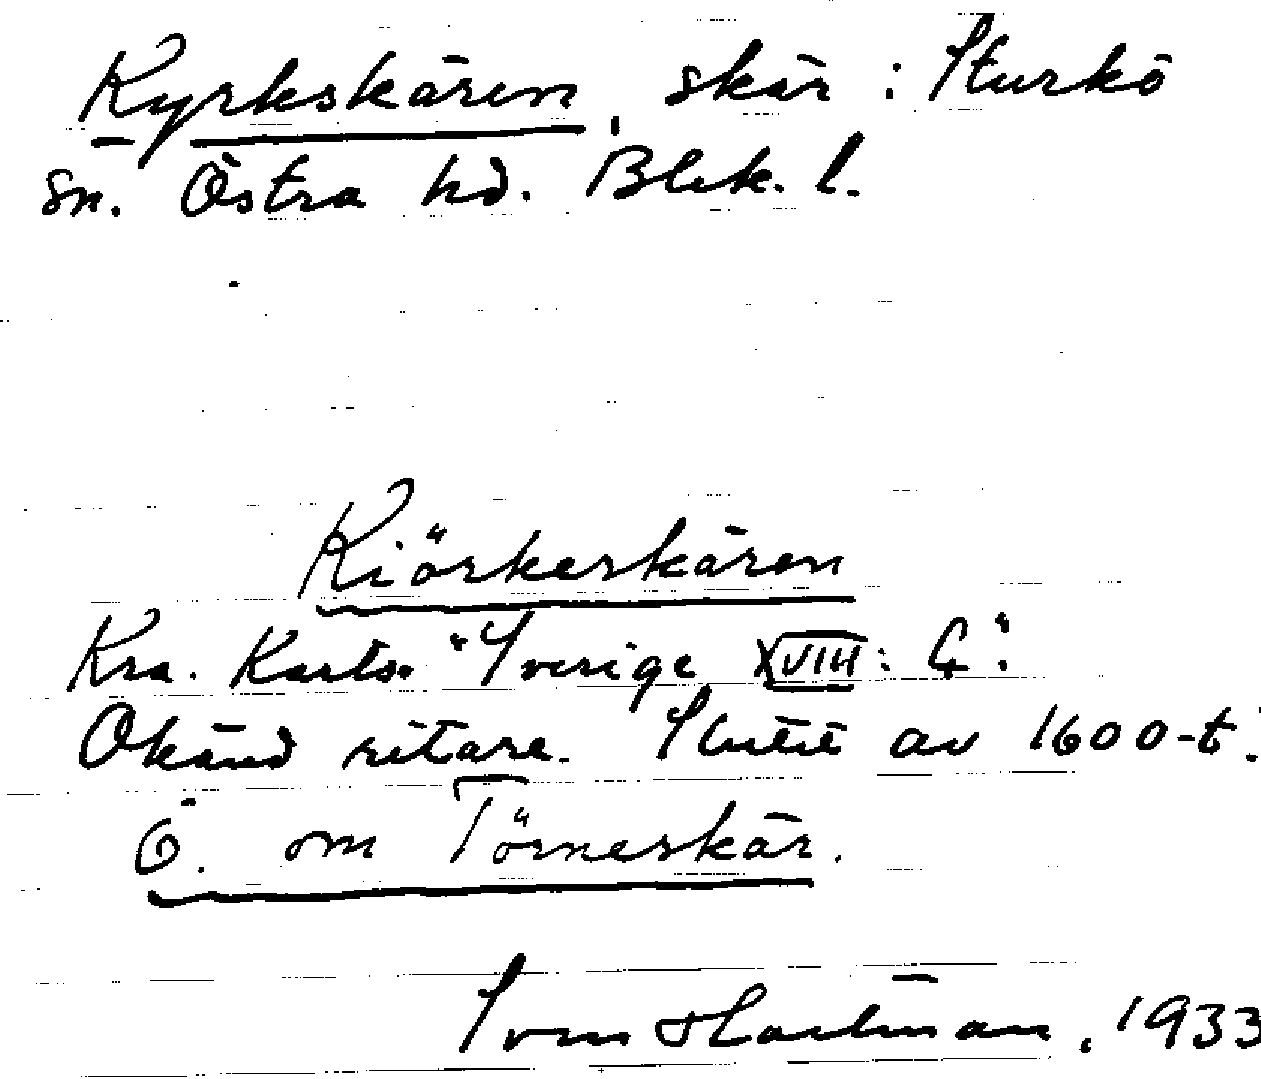 Kyrkskären, skär : Sturkö
sn. Östra hd. Blek. l.
Kiörkeskären
Kra. Karto. "Sverige XVIII: G".
Okänd ritare. Slutet av 1600-t.
Ö. om Törneskär.
Sven Hartman, 1933